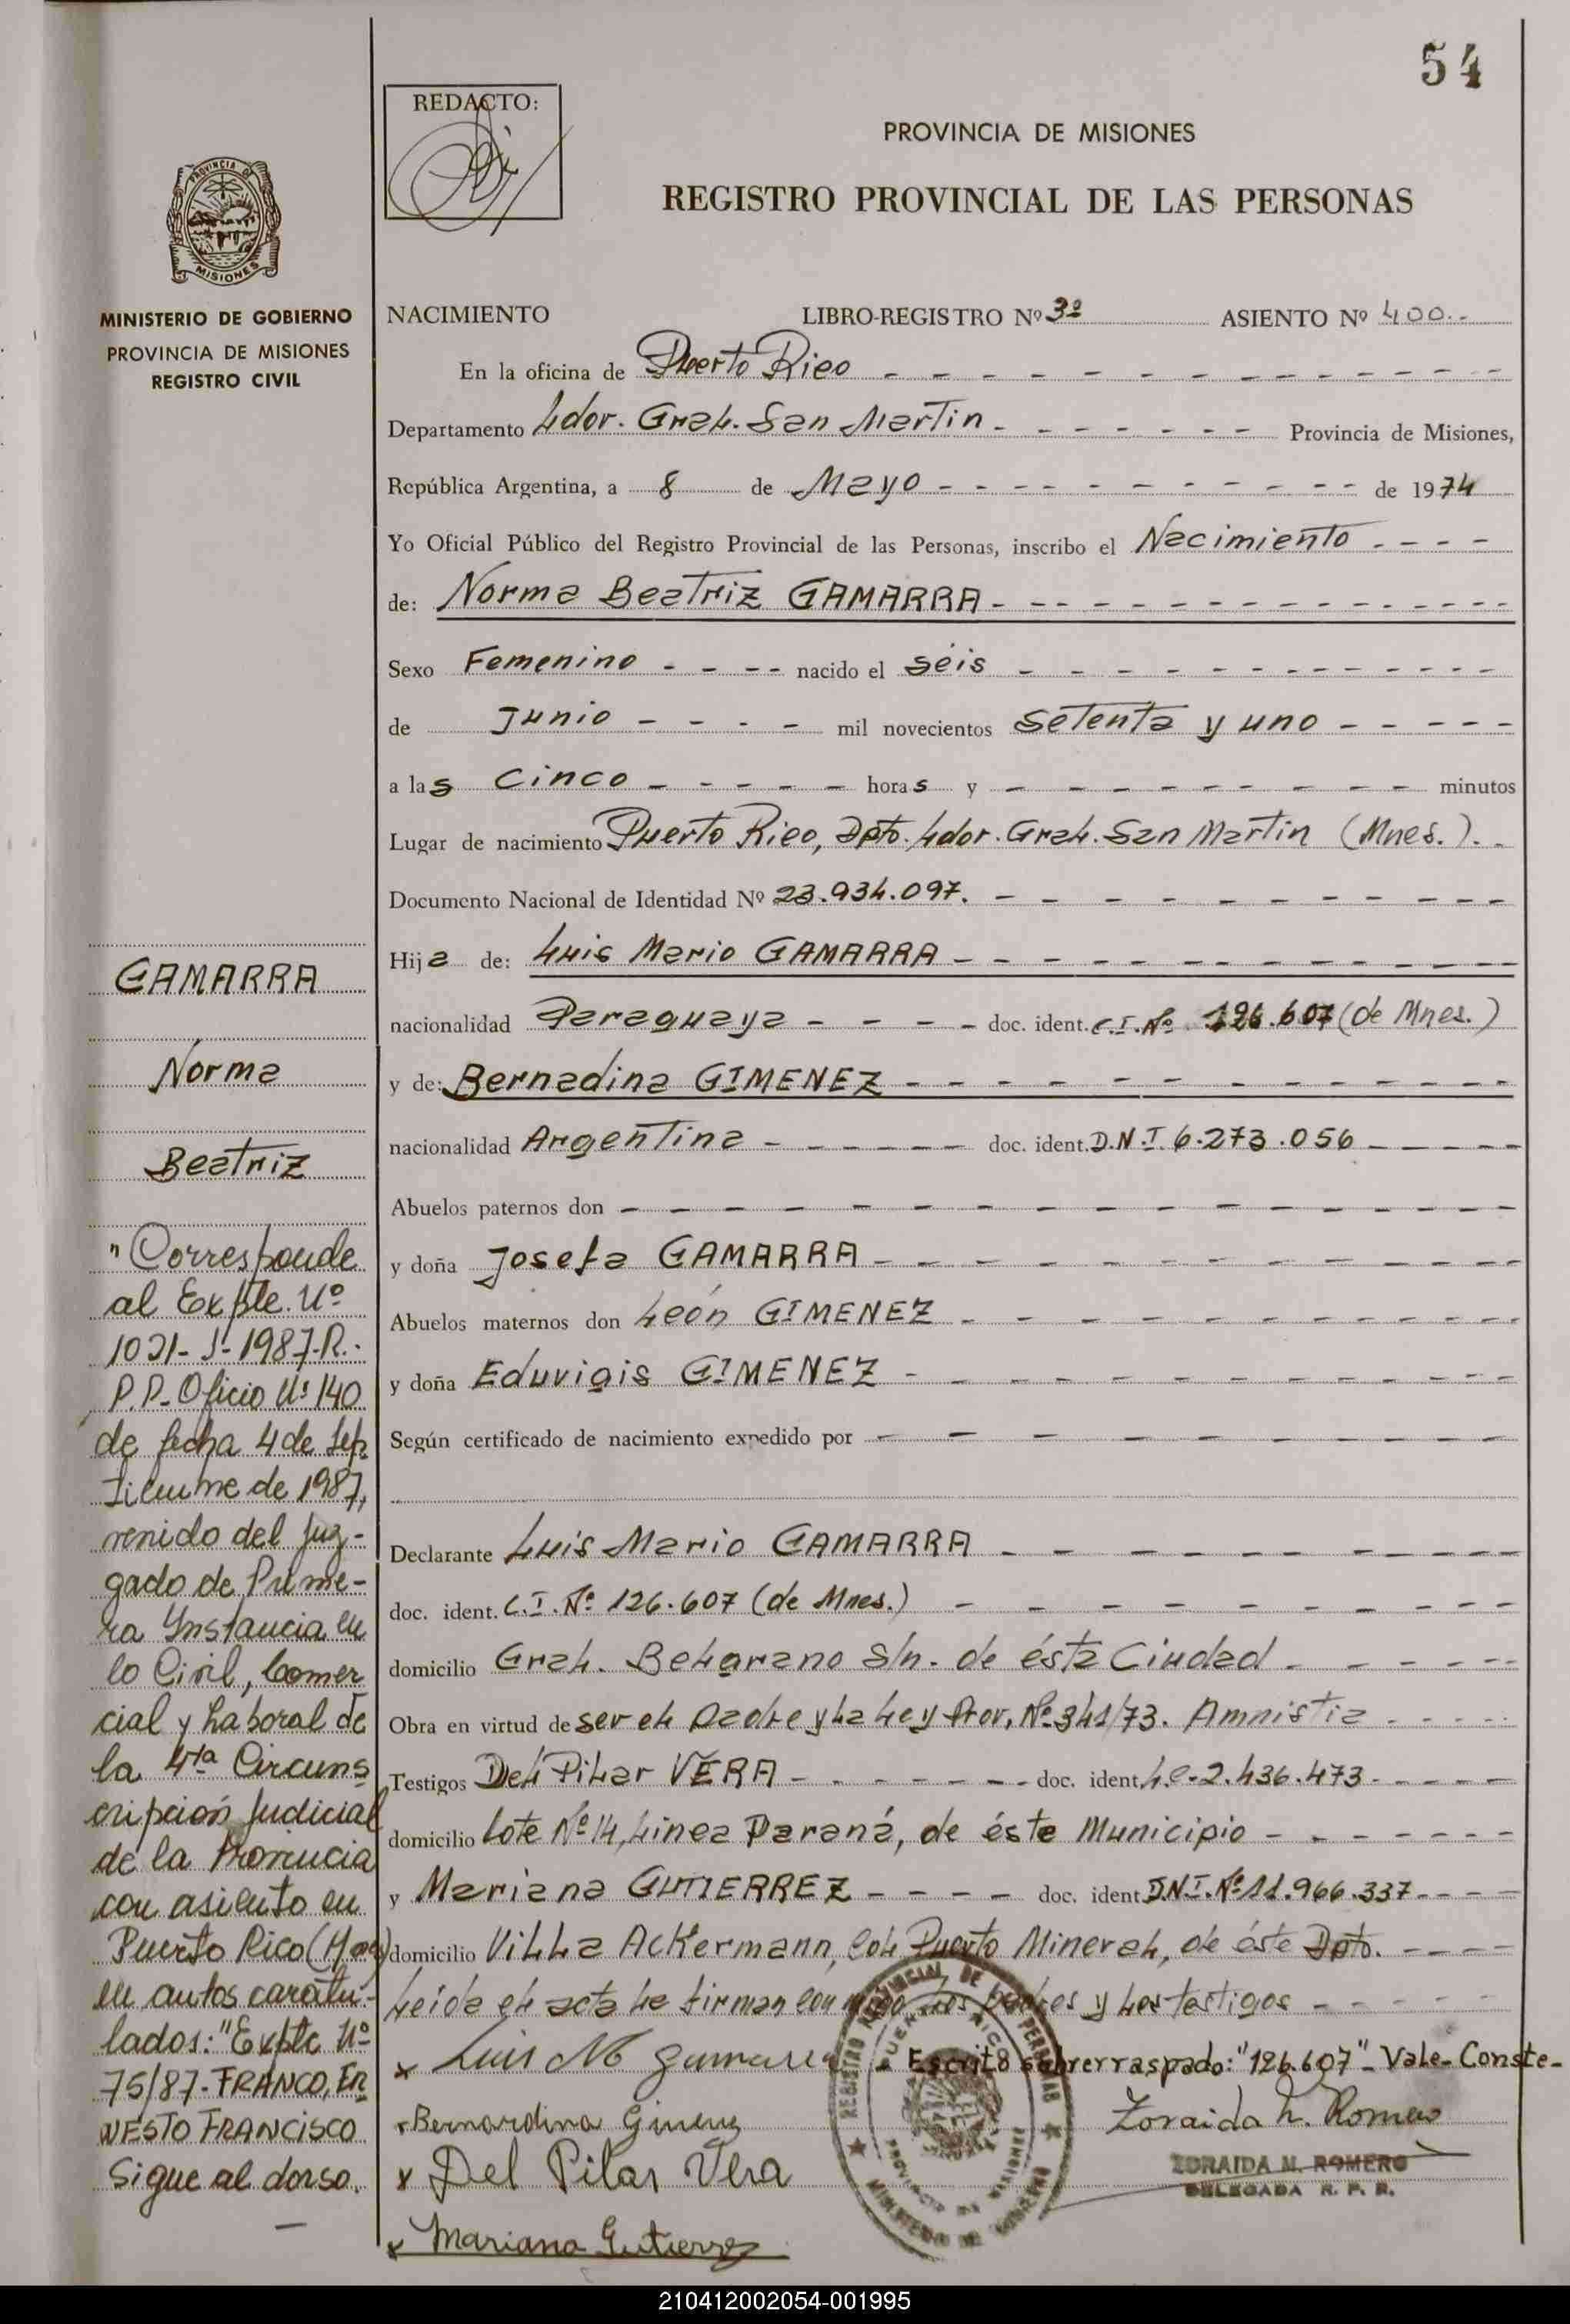 54
REDACTO:
PROVINCIA DE MISIONES
REGISTRO PROVINCIAL DE LAS PERSONAS
PROVINCIA DE
MISIONES
MINISTERIO DE GOBIERNO
PROVINCIA DE MISIONES
REGISTRO CIVIL
NACIMIENTO LIBRO-REGISTRO Nº 3º ASIENTO Nº 400.-
En la oficina de Puerto Rico
Departamento Ldor. Gral. San Martin - Provincia de Misiones,
República Argentina, a 8 de Mayo - de 1974
Yo Oficial Público del Registro Provincial de las Personas, inscribo el Nacimiento
de: Norma Beatriz GAMARRA
Sexo Femenino - nacido el séis
de Junio - mil novecientos setenta y uno
a las cinco - horas y - minutos
Lugar de nacimiento Puerto Rico, Dpto. Ldor. Gral. San Martin (Mnes.).-
Documento Nacional de Identidad Nº 23.934.097.
Hija de: Luis Mario GAMARRA
nacionalidad Paraguaya - doc. ident. C.I. Nº 126.607 (de Mnes.)
y de: Bernadina GIMENEZ
nacionalidad Argentina - doc. ident. D.N.I. 6.273.056
Abuelos paternos don
y doña Josefa GAMARRA
Abuelos maternos don León GIMENEZ
y doña Eduvigis GIMENEZ
Según certificado de nacimiento expedido por
Declarante Luis Mario GAMARRA
doc. ident. C.I. Nº 126.607 (de Mnes.)
domicilio Gral. Belgrano s/n. de ésta Ciudad
Obra en virtud de ser el padre y la Ley Prov. Nº 341/73. Amnistia
Testigos Del Pilar VERA - doc. ident. L.C. 2.436.473
domicilio Lote Nº 14, Linea Paraná, de éste Municipio
y Mariana GUTIERREZ - doc. ident. D.N.I. Nº 11.966.337
domicilio Villa Ackermann, Col. Puerto Mineral, de éste Dpto.
Leida el acta la firman con migo los padres y los testigos
x Luis M Gamarra
Escrito sobrerraspado: "126.607" - Vale - Conste -
x Bernardina Gimenez
Zoraida N. Romero
x Del Pilar Vera
ZORAIDA N. ROMERO
DELEGADA R. P. P.
x Mariana Gutierrez
REGISTRO PROVINCIAL DE LAS PERSONAS
PUERTO RICO
PROVINCIA DE MISIONES
MINISTERIO DE GOBIERNO
GAMARRA
Norma
Beatriz
"Corresponde
al Expte. Nº
1021-J-1987-R.-
P.P. Oficio Nº 140
de fecha 4 de Sep
tiembre de 1987,
venido del Juz-
gado de Prime-
ra Instancia en
lo Civil, Comer
cial y Laboral de
la 4ta Circuns
cripción Judicial
de la Provincia
con asiento en
Puerto Rico (Mnes)
en autos caratu-
lados: "Expte Nº
75/87- FRANCO, ER
NESTO FRANCISCO
Sigue al dorso.
210412002054-001995